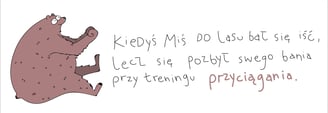 Kiedyś Miś do lasu bał się iść,
Lecz się pozbył swego bania
przy treningu przyciągania.